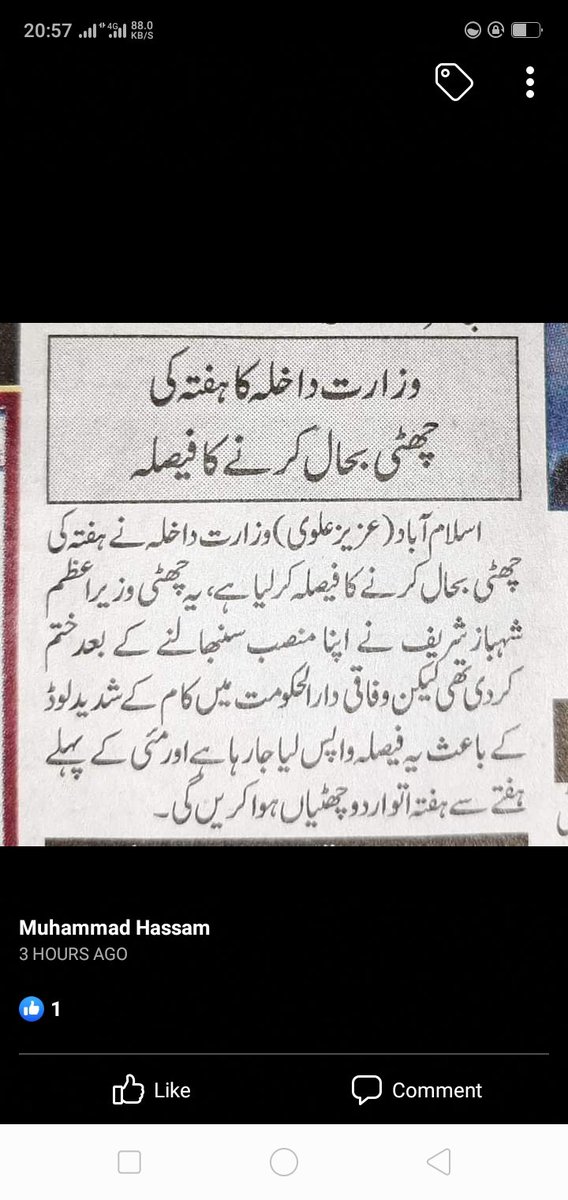 20:57
4G
88.0
KB/S
وزارت داخلہ کا ہفتہ کی
چھٹی بحال کرنے کا فیصلہ
اسلام آباد (عزیز علوی) وزارت داخلہ نے ہفتہ کی
چھٹی بحال کرنے کا فیصلہ کرلیا ہے، یہ چھٹی وزیراعظم
شہباز شریف نے اپنا منصب سنبھالنے کے بعد ختم
کردی تھی لیکن وفاقی دارالحکومت میں کام کے شدید لوڈ
کے باعث یہ فیصلہ واپس لیا جارہا ہے اور مئی کے پہلے
ہفتے سے ہفتہ اتوار دو چھٹیاں ہوا کریں گی۔
Muhammad Hassam
3 HOURS AGO
1
Like
Comment